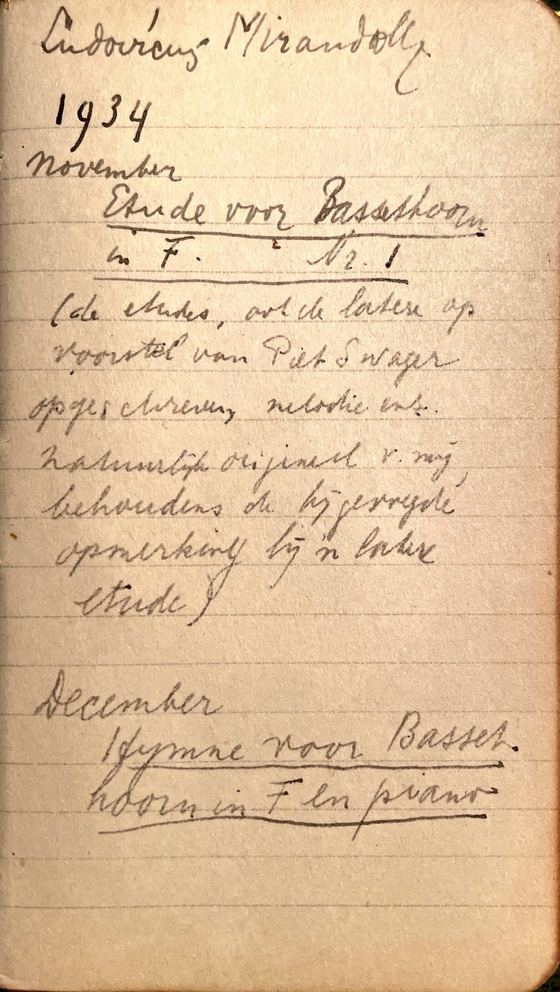 Ludovicus Mirandolle
1934
November
Etude voor Bassethoorn
in F. Nr. 1
(de etudes, ook de latere op
voorstel van Piet Swager
opgeschreven, melodie enz.
natuurlijk origineel v. mij,
behoudens de bijgevoegde
opmerking bij 'n latere
etude)
December
Hymne voor Basset-
hoorn in F en piano